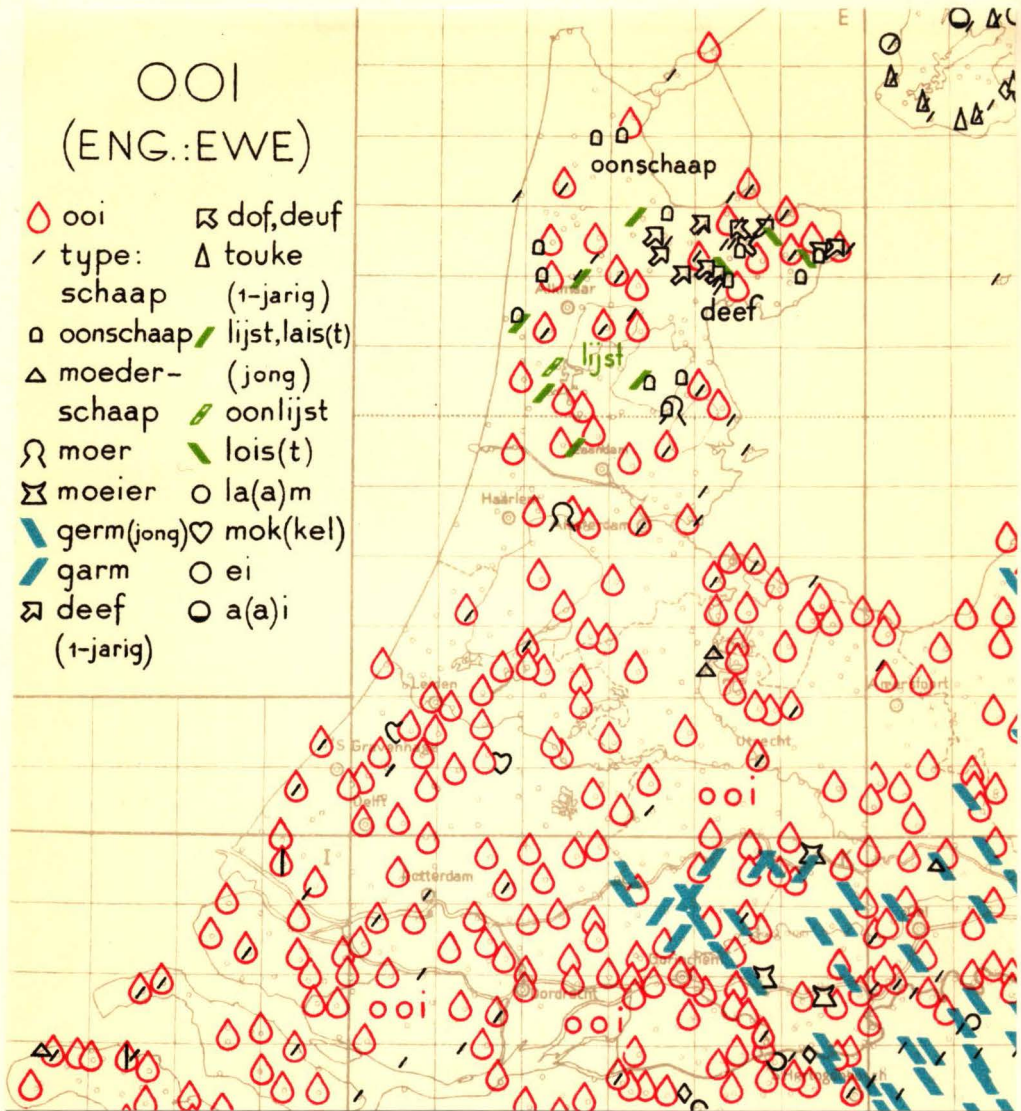 OOI
(ENG.:EWE)
ooi
type:
schaap
oonschaap
moeder-
schaap
moer
moeier
germ(jong)
garm
deef
(1-jarig)
dof,deuf
touke
(1-jarig)
lijst,lais(t)
(jong)
oonlijst
lois(t)
la(a)m
mok(kel)
ei
a(a)i
E
oonschaap
Alkmaar
deef
lijst
Zaandam
Haarlem
Amsterdam
Leiden
Amersfoort
S Gravenhage
Utrecht
Delft
ooi
I
K
Rotterdam
Gorinchem
Dordrecht
ooi
ooi
S Hertogenbosch